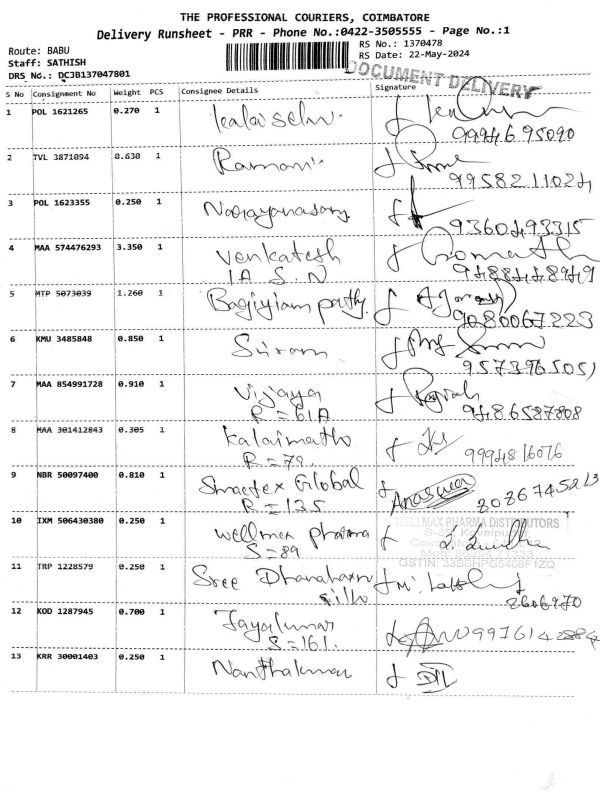 THE PROFESSIONAL COURIERS, COIMBATORE
Delivery Runsheet - PRR - Phone No.:0422-3505555 - Page No.:1
Route: BABU
Staff: SATHISH
DRS No.: DCJB137047801
RS No.: 1370478
RS Date: 22-May-2024
DOCUMENT DELIVERY
S No Consignment No Weight PCS Consignee Details Signature
1 POL 1621265 0.270 1 Kalaiselvi
99946 95090
2 TVL 3871094 0.630 1 Ramani
9958211024
3 POL 1623355 0.250 1 Narayanasamy
9360493315
4 MAA 574476293 3.350 1 Venkatesh
1A S.N
9488448949
5 MTP 5073039 1.260 1 Bagiyiam pathy
9080067223
6 KMU 3485848 0.850 1 Sriram
957396505)
7 MAA 854991728 0.910 1 Vijaya
R = 61A
9486587808
8 MAA 301412843 0.305 1 Kalaimathi
R = 79.
9994816076
9 NBR 50097400 0.810 1 Global
R = 135
8086745213
10 IXM 506430380 0.250 1 wellmax pharma
S = 89
WELLMAX PHARMA DISTRIBUTORS
11 TRP 1228579 0.250 1 Sree
silks
2606970
12 KOD 1287945 0.700 1 Jayakumar
S = 161.
13 KRR 30001403 0.250 1 Nanthakumar